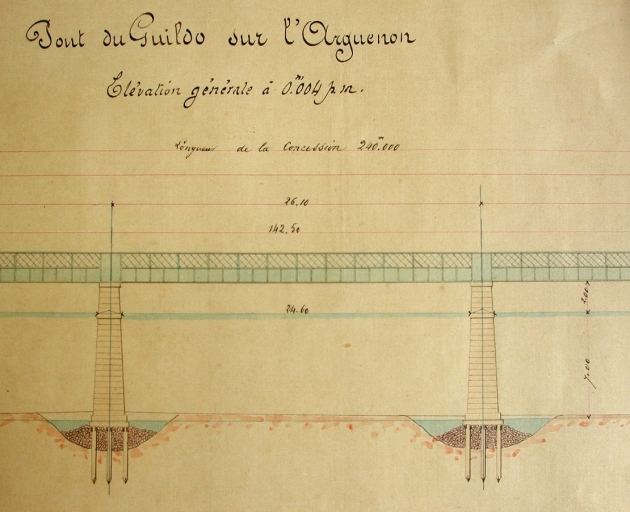 Pont du Guildo sur l'Arguenon
Elévation générale à 0.m004 p. m.
Longueur de la Concession 240.m000
26.10
142.50
24.60
2.00
7.00